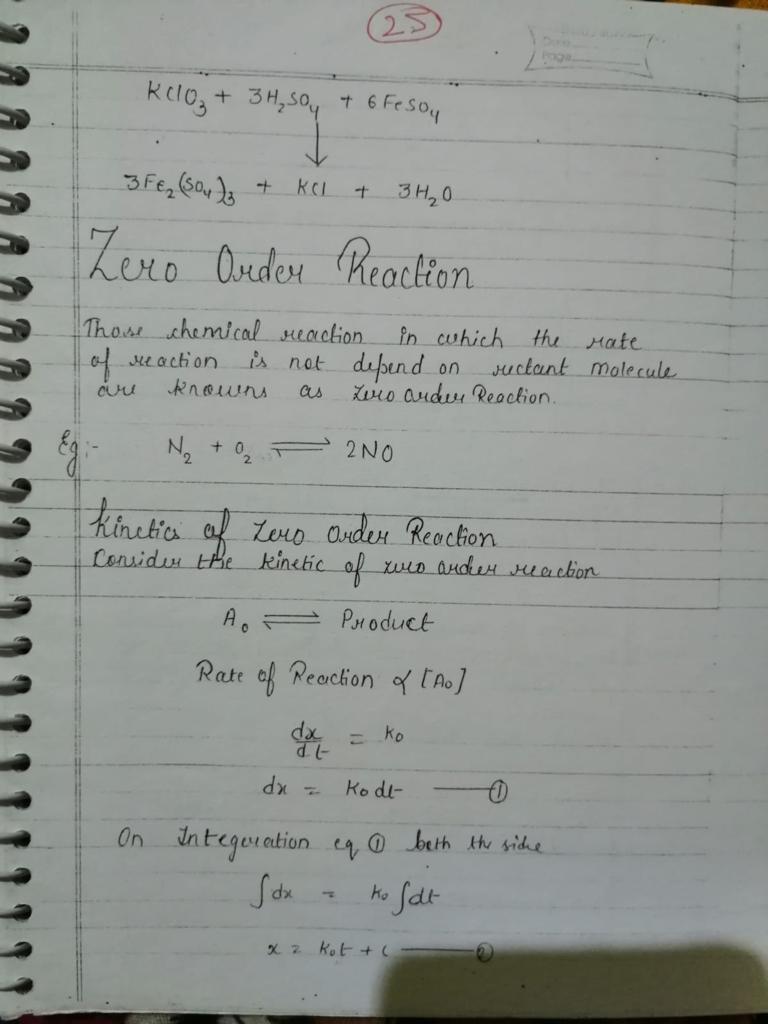 25
Date
Page
KClO3 + 3H2SO4 + 6FeSO4
↓
3Fe2(SO4)3 + KCl + 3H2O
Zero Order Reaction
Those chemical reaction in which the rate
of reaction is not depend on rectant molecule
are knowns as zero order Reaction.
Eg:- N2 + O2 ⇌ 2NO
Kinetics of Zero Order Reaction
Consider the kinetic of zero order reaction
A0 ⇌ Product
Rate of Reaction ∝ [A0]
dx/dt = K0
dx = K0 dt —— ①
On Integeration eq ① both the side
∫dx = K0 ∫dt
x = K0t + C —— ②